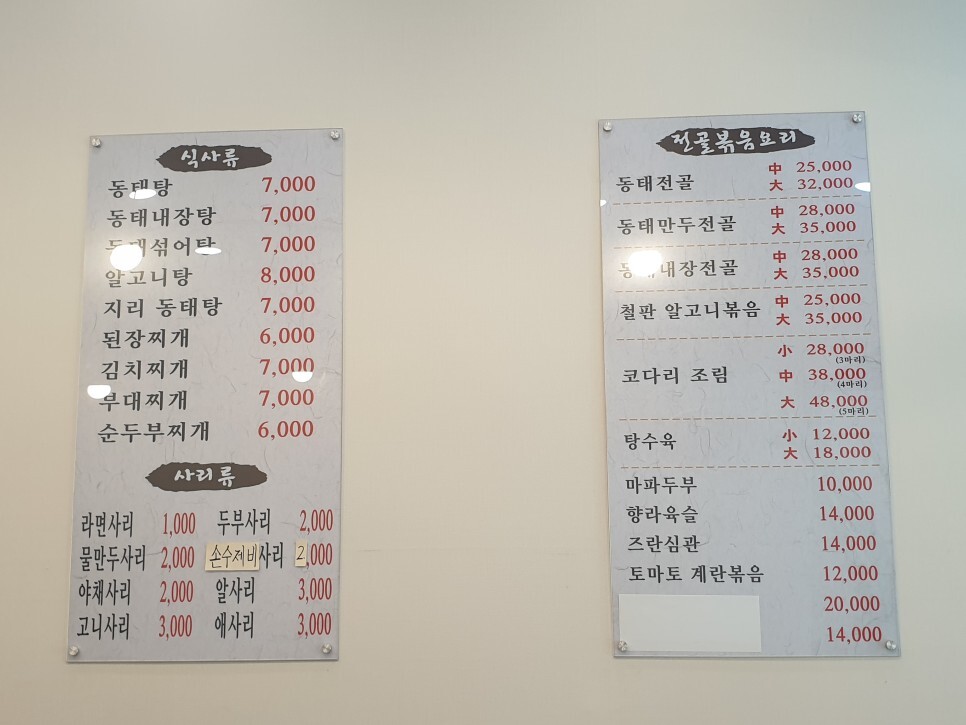 식사류
동태탕 7,000
동태내장탕 7,000
동태섞어탕 7,000
알고니탕 8,000
지리 동태탕 7,000
된장찌개 6,000
김치찌개 7,000
부대찌개 7,000
순두부찌개 6,000
사리류
라면사리 1,000 두부사리 2,000
물만두사리 2,000 손수제비사리 2,000
야채사리 2,000 알사리 3,000
고니사리 3,000 애사리 3,000
전골볶음요리
동태전골 中 25,000
大 32,000
동태만두전골 中 28,000
大 35,000
동태내장전골 中 28,000
大 35,000
철판 알고니볶음 中 25,000
大 35,000
코다리 조림 小 28,000
(3마리)
中 38,000
(4마리)
大 48,000
(5마리)
탕수육 小 12,000
大 18,000
마파두부 10,000
향라육슬 14,000
즈란심관 14,000
토마토 계란볶음 12,000
20,000
14,000